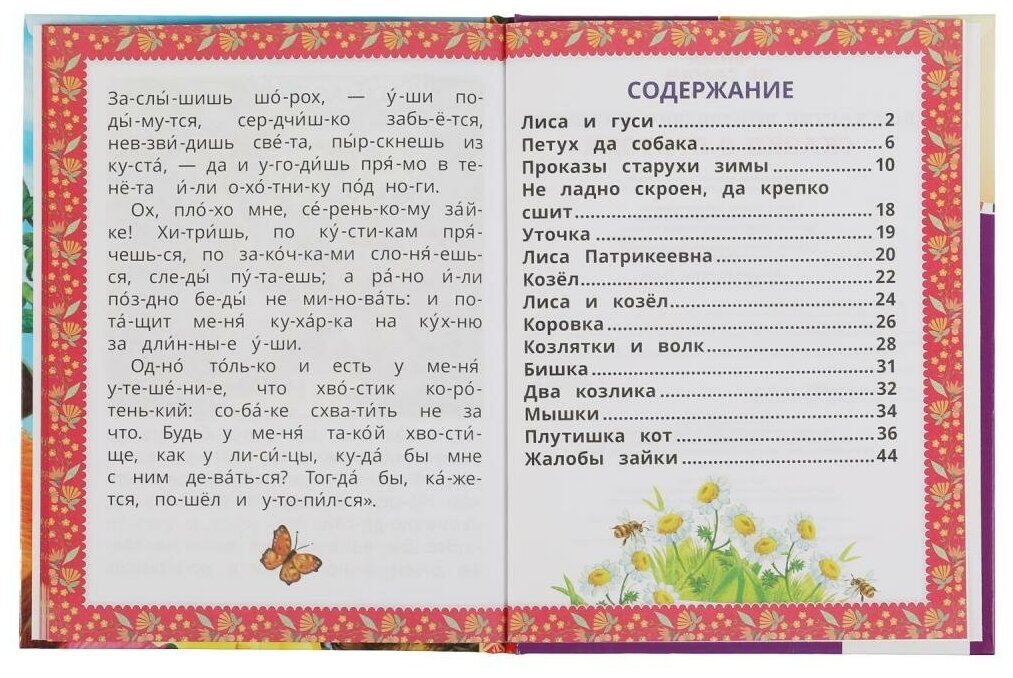 За-слы́-шишь шо́-рох, — у́-ши по-
ды́-му-тся, сер-дчи́ш-ко забь-ё-тся,
нев-зви́-дишь све́-та, пы́р-скнешь из
ку-ста́, — да и у-го-ди́шь пря́-мо в те-
нё-та и́-ли о-хо́-тни-ку по́д но-ги.
Ох, пло́-хо мне, се́-рень-ко-му за́й-
ке! Хи-три́шь, по ку́-сти-кам пря́-
чешь-ся, по за-ко́ч-ка-ми сло-ня́-ешь-
ся, сле-ды́ пу́-та-ешь; а ра́-но и́-ли
по́з-дно бе-ды́ не ми-но-ва́ть: и по-
та́-щит ме-ня́ ку-ха́р-ка на ку́х-ню
за дли́н-ны-е у́-ши.
Од-но́ то́ль-ко и есть у ме-ня́
у-те-ше́-ни-е, что хво́-стик ко-ро́-
тень-кий: со-ба́-ке схва-ти́ть не за
что. Будь у ме-ня́ та-ко́й хво-сти́-
ще, как у ли-си́-цы, ку-да́ бы мне
с ним де-ва́ть-ся? Тог-да́ бы, ка́-же-
тся, по-шёл и у-то-пи́л-ся».
СОДЕРЖАНИЕ
Лиса и гуси ..... 2
Петух да собака ..... 6
Проказы старухи зимы ..... 10
Не ладно скроен, да крепко
сшит ..... 18
Уточка ..... 19
Лиса Патрикеевна ..... 20
Козёл ..... 22
Лиса и козёл ..... 24
Коровка ..... 26
Козлятки и волк ..... 28
Бишка ..... 31
Два козлика ..... 32
Мышки ..... 34
Плутишка кот ..... 36
Жалобы зайки ..... 44